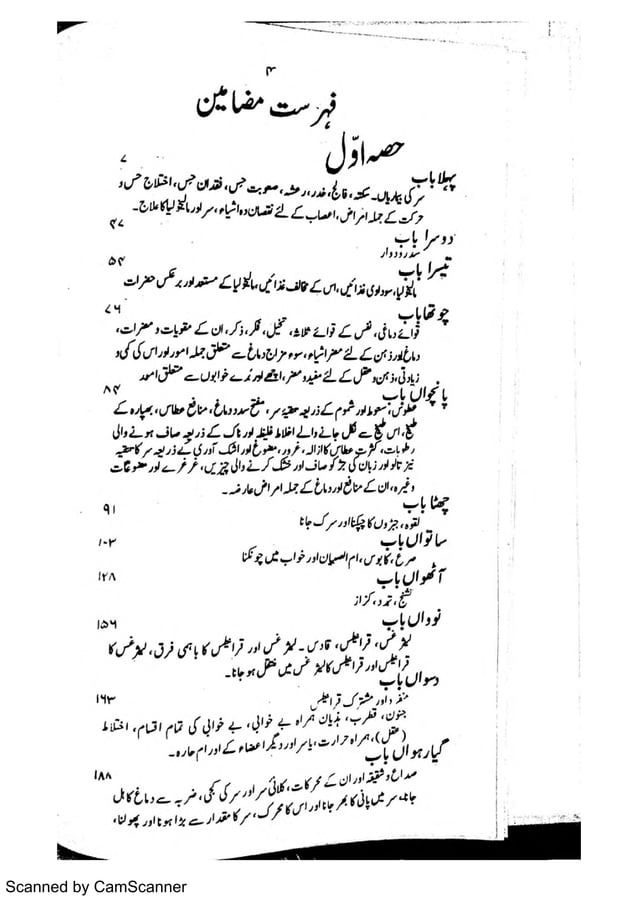 ۴
فہرست مضامین
حصہ اوّل
پہلا باب ۷
سر کی بیماریاں۔ سکتہ، فالج، خدر، رعشہ، صعوبت حِس، فقدان حِس، اختلاج حِس و
حرکت کے جملہ امراض، اعصاب کے لئے نقصان دہ اشیاء، سر اور مالیخولیا کا علاج۔
دوسرا باب ۴۷
سدر و دوار
تیسرا باب ۵۴
مالیخولیا، سوداوی غذائیں، اس کے مخالف غذائیں، مالیخولیا کے مستعد اور برعکس حضرات
چوتھا باب ۷۶
قوائے دماغی، نفس کے قوائے ثلاثہ، تخیل، فکر، ذکر، ان کے مقویات و مضرات،
دماغ اور ذہن کے لئے مضر اشیاء، سوء مزاج دماغ سے متعلق جملہ امور اور اس کی کمی و
زیادتی، ذہن و عقل کے لئے مفید و مضر، اچھے اور بُرے خوابوں سے متعلق امور
پانچواں باب ۸۴
عطوس، سعوط اور شموم کے ذریعہ تنقیۂ سر، مفتح سدد دماغ، منافع عطاس، بھپارہ کے
طبخ، اس طبخ سے نکل جانے والے اخلاط غلیظہ اور ناک کے ذریعہ صاف ہونے والی
رطوبات، کثرت عطاس کا ازالہ، غرور، مضوغ اور اشک آوری کے ذریعہ سر کا تنقیہ
نیز تالو اور زبان کی جڑ کو صاف اور خشک کرنے والی چیزیں، غرغرے اور مضوغات
وغیرہ، ان کے منافع اور دماغ کے جملہ امراض عارضہ۔
چھٹا باب ۹۱
لقوہ، جبڑوں کا چپکنا اور سرک جانا
ساتواں باب ۱۰۳
مرع، کابوس، ام الصبیان اور خواب میں چونکنا
آٹھواں باب ۱۲۸
تشنج، تمدد، کزاز
نوواں باب ۱۵۶
لیثرغس، قرانیطس، قادس۔ لیثرغس اور قرانیطس کا باہمی فرق، لیثرغس کا
قرانیطس اور قرانیطس کا لیثرغس میں منتقل ہو جانا۔
دسواں باب ۱۶۳
منفرد اور مشترک قرانیطس
جنون، قطرب، ہذیان ہمراہ بے خوابی، بے خوابی کی تمام اقسام، اختلاط
(عقل)، ہمراہ حرارت، یا سر اور دیگر اعضاء کے اورام حارہ۔
گیارہواں باب ۱۸۸
صداع و شقیقہ اور ان کے محرکات، کلائی سر اور سر کی کجی، ضربہ سے دماغ کا ہل
جانا، سر میں پانی کا بھر جانا اور اس کا محرک، سر کا مقدار سے بڑا ہونا اور پھولنا،
Scanned by CamScanner